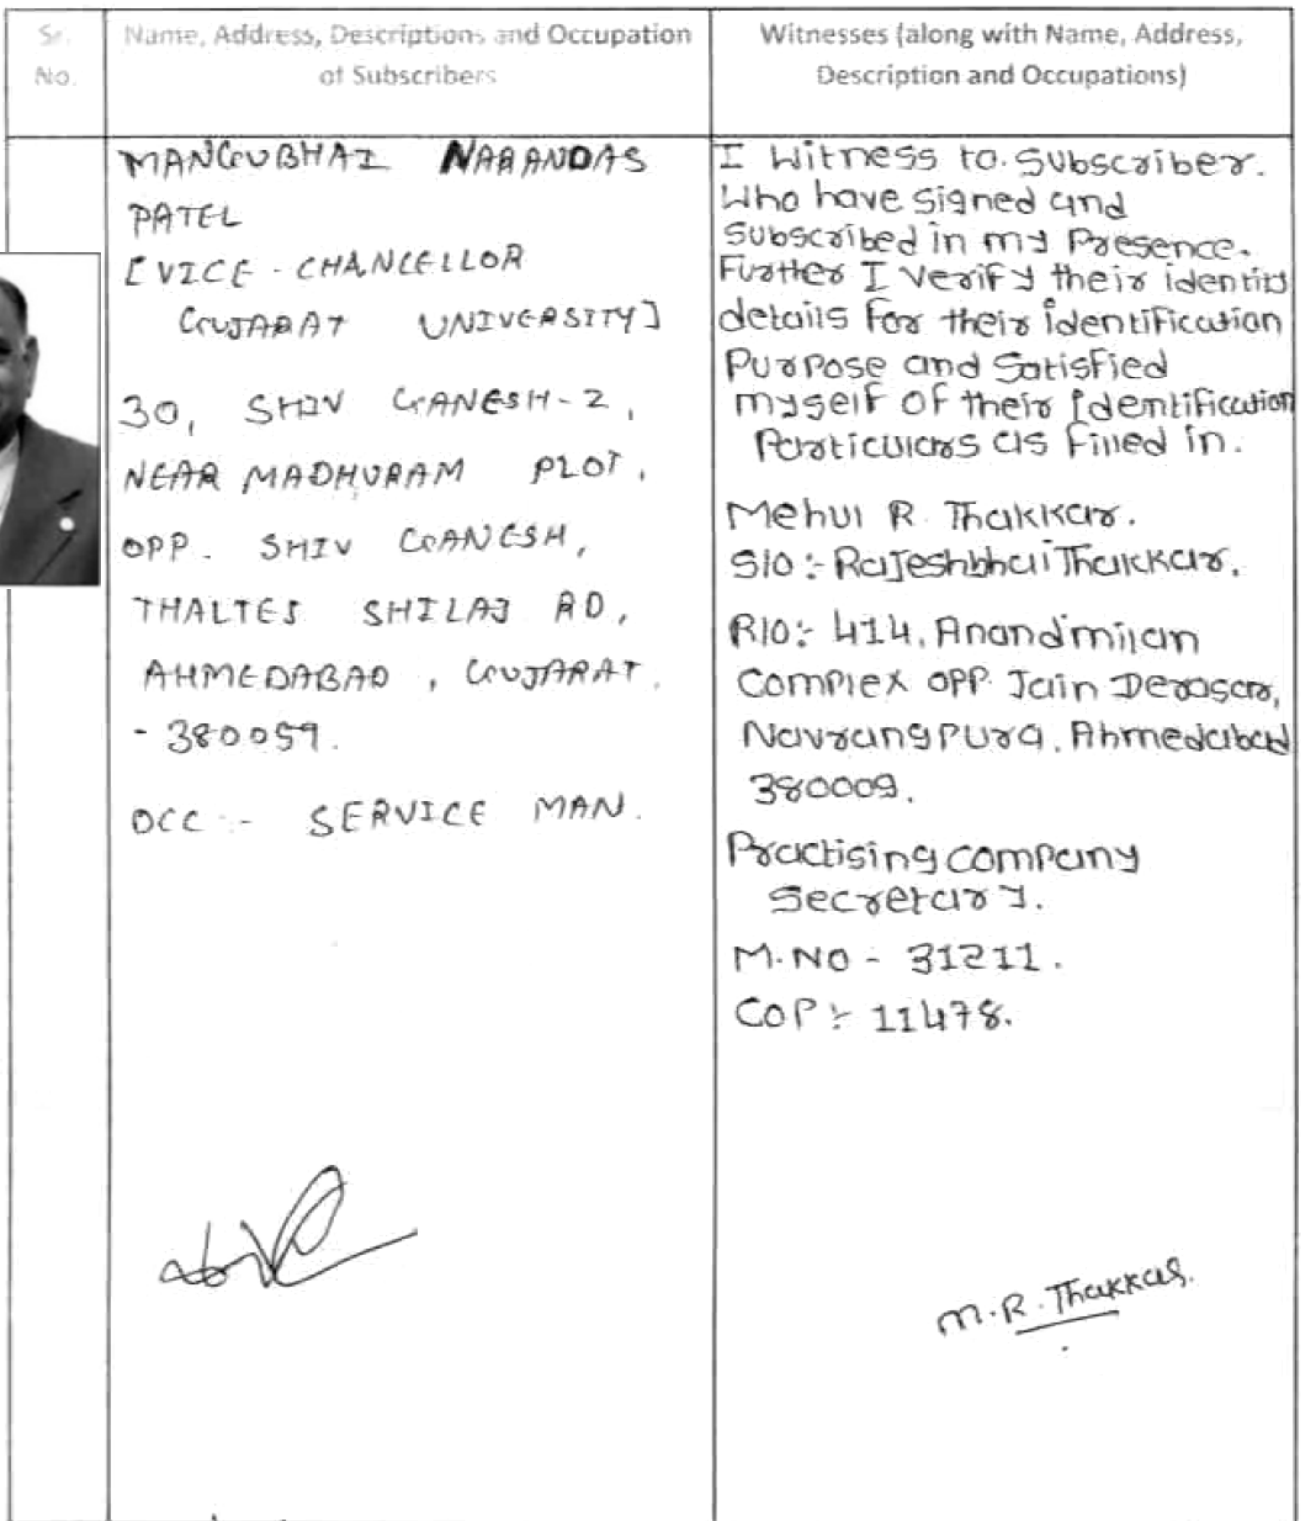 Sr.
No.
Name, Address, Descriptions and Occupation
of Subscribers
Witnesses (along with Name, Address,
Description and Occupations)
MANGUBHAI NARANDAS
PATEL
[VICE - CHANCELLOR
GUJARAT UNIVERSITY]
30, SHIV GANESH-2,
NEAR MADHURAM PLOT,
OPP. SHIV GANESH,
THALTEJ SHILAJ RD,
AHMEDABAD, GUJARAT.
- 380059.
OCC :- SERVICE MAN.
I Witness to Subscriber.
Who have signed and
Subscribed in my Presence.
Further I verify their identity
details for their identification
Purpose and Satisfied
myself of their Identification
Particulars as filled in.
Mehul R. Thakkar.
S/O :- Rajeshbhai Thakkar.
R/O :- 414, Anandmilan
Complex OPP. Jain Derasar,
Navrangpura, Ahmedabad
380009.
Practising Company
Secretary.
M.NO - 31211.
COP :- 11478.
M.R.Thakkar.